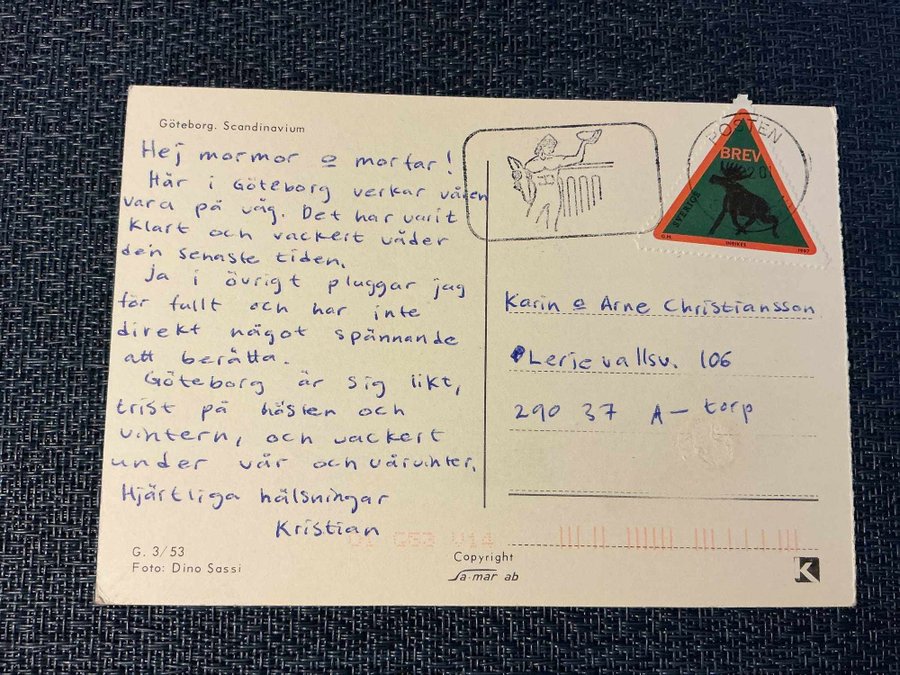 Göteborg. Scandinavium
Hej mormor o morfar!
Här i Göteborg verkar våren
vara på väg. Det har varit
klart och vackert väder
den senaste tiden.
Ja i övrigt pluggar jag
för fullt och har inte
direkt något spännande
att berätta.
Göteborg är sig likt,
trist på hösten och
vintern, och vackert
under vår och vårvinter.
Hjärtliga hälsningar
Kristian
G. 3/53
Foto: Dino Sassi
Copyright
Sa-mar ab
K
POSTEN
BREV
SVERIGE
G.M.
INRIKES
1997
Karin o Arne Christiansson
Lerjevallsv. 106
290 37 A-torp